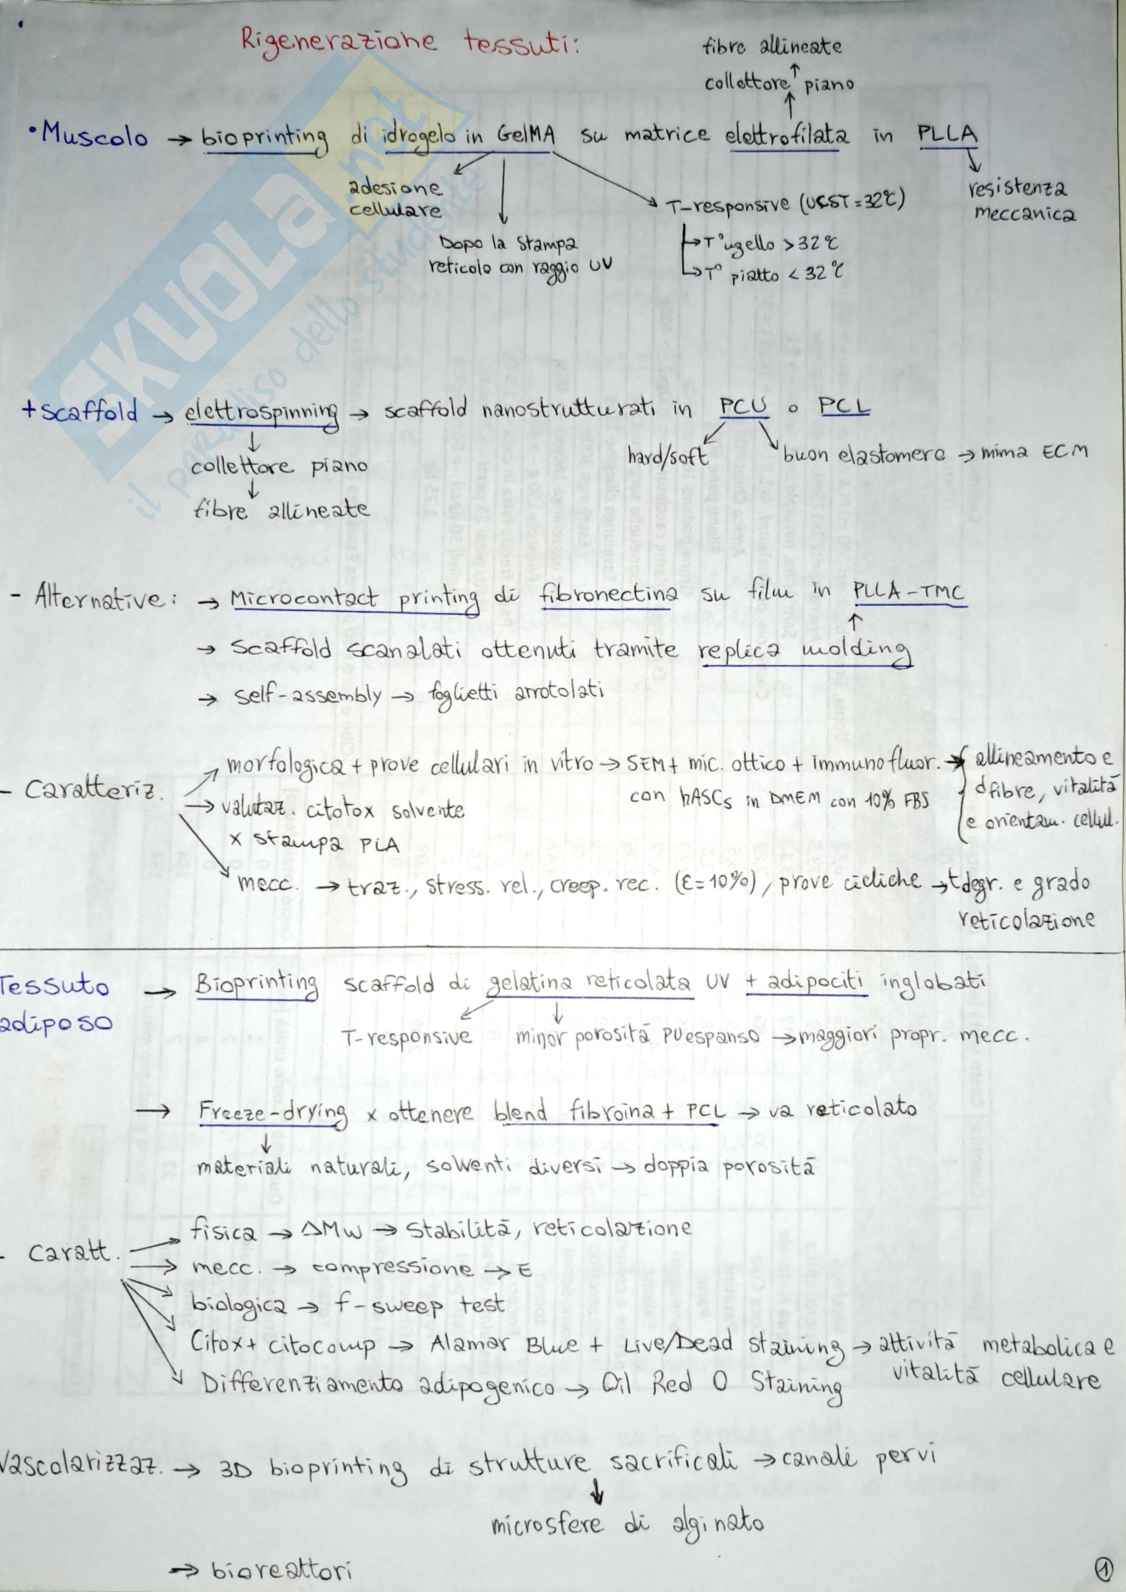 Rigenerazione tessuti:
fibre allineate
↑
collettore piano
• Muscolo → bioprinting di idrogelo in GelMA su matrice elettrofilata in PLLA
adesione cellulare
Dopo la stampa reticolo con raggio UV
T-responsive (UCST = 32°C)
→ T° ugello > 32°C
→ T° piatto < 32°C
resistenza meccanica
+ scaffold → elettrospinning → scaffold nanostrutturati in PCU o PCL
collettore piano
↓
fibre allineate
hard/soft
buon elastomero → mima ECM
- Alternative: → Microcontact printing di fibronectina su film in PLLA-TMC
→ scaffold scanalati ottenuti tramite replica molding
→ self-assembly → foglietti arrotolati
- Caratteriz.
morfologica + prove cellulari in vitro → SEM + mic. ottico + immunofluor. → allineamento e
con hASCs in DMEM con 10% FBS
dfibre, vitalità
e orientam. cellul.
→ valutaz. citotox solvente
x stampa PLA
mecc. → traz., stress. rel., creep. rec. (ε=10%), prove cicliche → tdegr. e grado
reticolazione
Tessuto adiposo
→ Bioprinting scaffold di gelatina reticolata UV + adipociti inglobati
T-responsive
minor porosità PU espanso → maggiori propr. mecc.
→ Freeze-drying x ottenere blend fibroina + PCL → va reticolato
↓
materiali naturali, solventi diversi → doppia porosità
- Caratt.
fisica → ΔMw → stabilità, reticolazione
mecc. → compressione → E
biologica → f-sweep test
Citox + citocomp → Alamar Blue + Live/Dead staining → attività metabolica e
vitalità cellulare
Differenziamento adipogenico → Oil Red O Staining
Vascolarizzaz. → 3D bioprinting di strutture sacrificali → canali pervi
↓
microsfere di alginato
→ bioreattori
1
SKUOLA.net
il paradiso dello studente